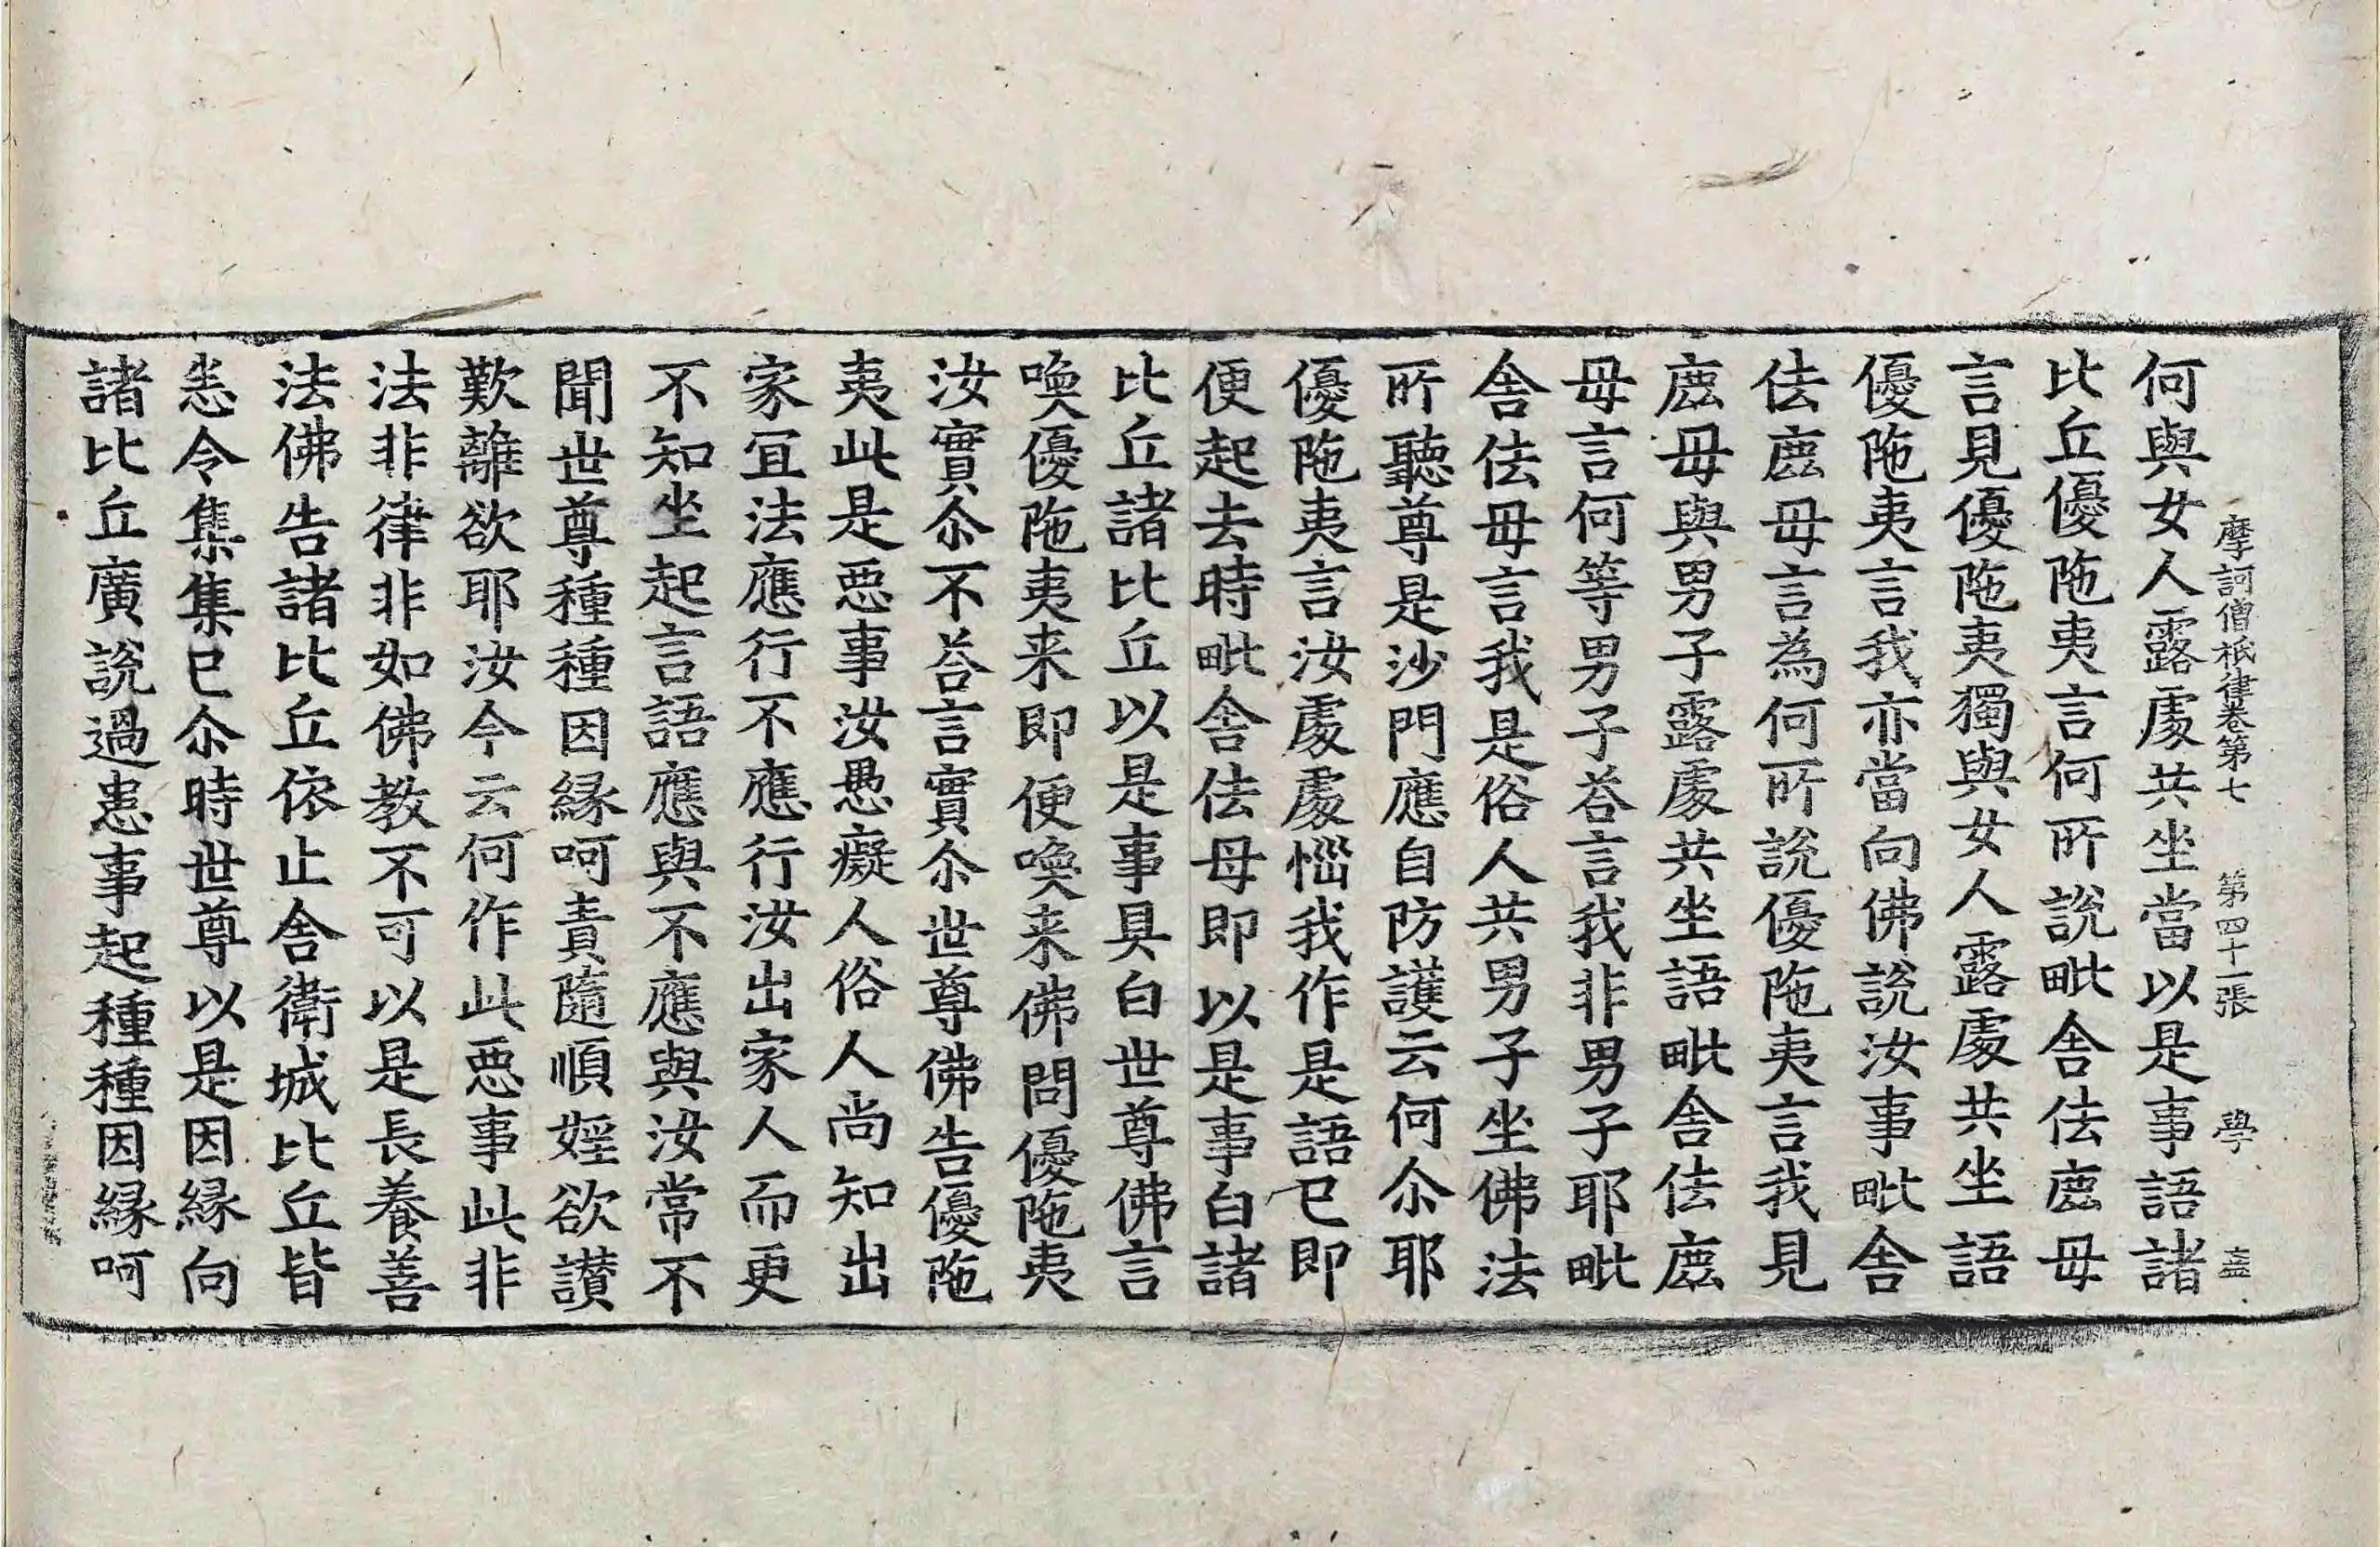 摩訶僧祇律卷第七 第四十一張 學 盍
何與女人露處共坐當以是事語諸
比丘優陁夷言何所說毗舍佉鹿母
言見優陁夷獨與女人露處共坐語
優陁夷言我亦當向佛說汝事毗舍
佉鹿母言為何所說優陁夷言我見
鹿母與男子露處共坐語毗舍佉鹿
母言何等男子荅言我非男子耶毗
舍佉母言我是俗人共男子坐佛法
所聽尊是沙門應自防護云何尒耶
優陁夷言汝處處惱我作是語已即
便起去時毗舍佉母即以是事白諸
比丘諸比丘以是事具白世尊佛言
喚優陁夷来即便喚来佛問優陁夷
汝實尒不荅言實尒世尊佛告優陁
夷此是惡事汝愚癡人俗人尚知出
家冝法應行不應行汝出家人而更
不知坐起言語應與不應與汝常不
聞世尊種種因緣呵責隨順婬欲讃
歎離欲耶汝今云何作此惡事此非
法非律非如佛教不可以是長養善
法佛告諸比丘依止舍衛城比丘皆
悉令集集已尒時世尊以是因緣向
諸比丘廣說過患事起種種因緣呵